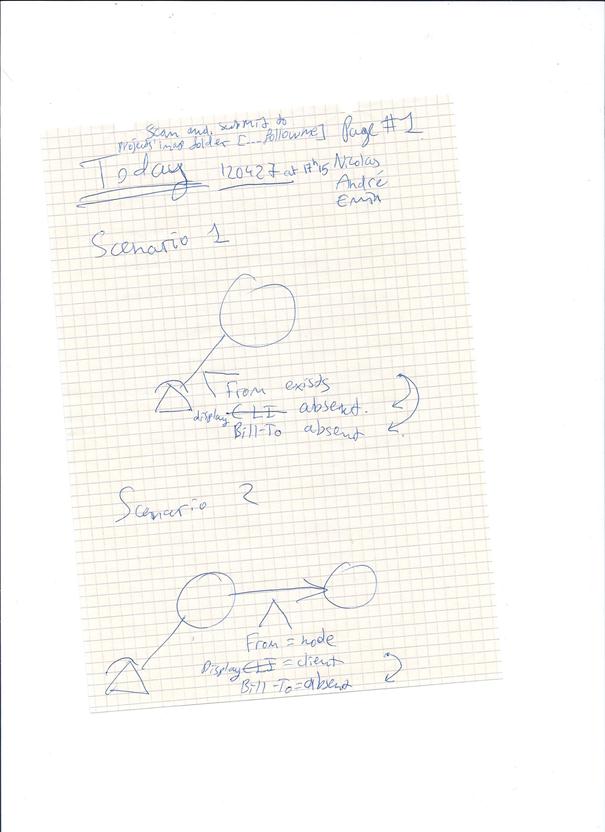 Scan and submit to
Projects' folder [....followme] Page #1
Today 120427 at 17h15 Nicolas
André
Emin
Scenario 1
From exists
display CLI absent.
Bill-To absent
Scenario 2
From = node
Display CLI = client
Bill-To = absent